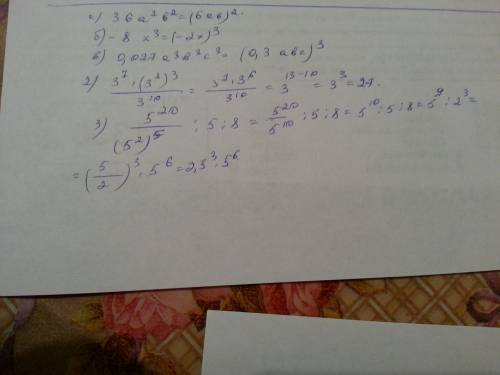 а) 36 a² b² = (6ab)².
б) -8 x³ = (-2x)³
в) 0,027 a³ b³ c³ = (0,3 abc)³
2) 3⁷ · (3²)³ / 3¹⁰ = 3⁷ · 3⁶ / 3¹⁰ = 3¹³⁻¹⁰ = 3³ = 27.
3) 5²⁰ / (5²)⁵ : 5 : 8 = 5²⁰ / 5¹⁰ : 5 : 8 = 5¹⁰ : 5 : 8 = 5⁹ : 2³ =
= (5/2)³ · 5⁶ = 2,5³ · 5⁶